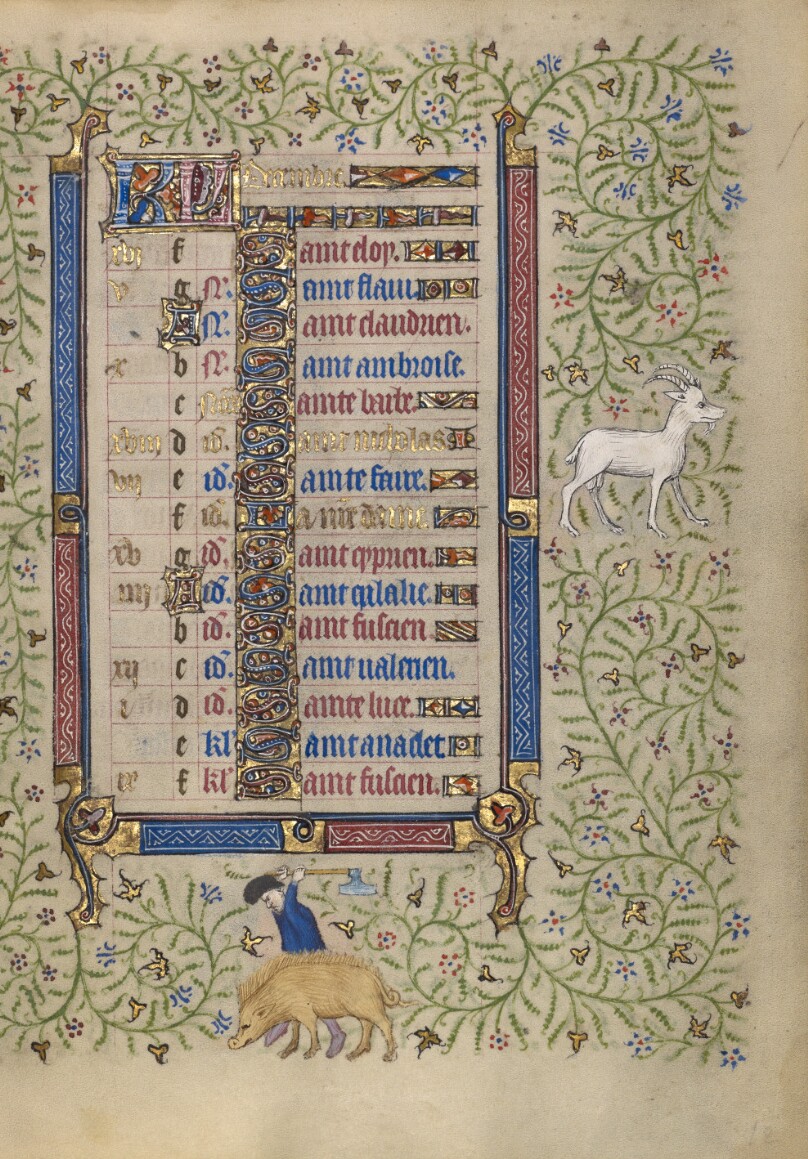 KL Decembre
xvj f Saint eloy.
v g N. Saint flaui
A N. Saint claudrien.
x b N. Saint ambroise.
c Sainte barbe.
xviij d id. Saint nicholas
vij e id. Sainte faire.
f id. La nre dame.
xv g id. Saint cyprien.
iiij A id. Saint eulalie.
b id. Saint fuscien.
xij c id. Saint ualerien.
i d id. Sainte luce.
e kl Saint anaclet
ix f kl Saint fuscien.